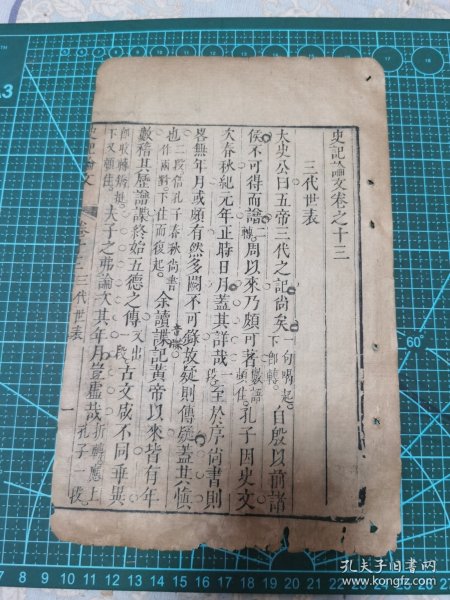 史記論文卷之十三
三代世表
太史公曰五帝三代之記尚矣一句喝起下即轉自殷以前諸
侯不可得而譜一轉周以來乃頗可著數語頓住孔子因史文
次春秋紀元年正時日月蓋其詳哉一段至於序尚書則
畧無年月或頗有然多闕不可錄故疑則傳疑蓋其慎
也二段信孔子春秋尚書作兩對下住而復起余讀諜記黃帝以來皆有年
音牒
數稽其歷譜諜終始五德之傳又出段古文咸不同乖異
即收轉下又頓住夫子之弗論次其年月豈虛哉折轉應上孔子一段
史記論文
卷十三三代世表
一
A3
60°
孔夫子旧书网
www.kongfz.com